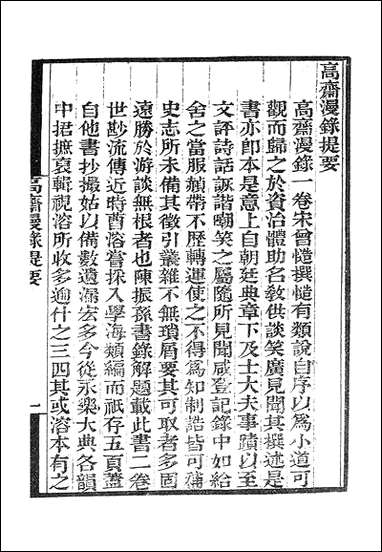 高齋漫錄提要
高齋漫錄一卷宋曾慥撰慥有類說自序以爲小道可
觀而歸之於資治體助名敎供談笑廣見聞其撰述是
書亦卽本是意上自朝廷典章下及士大夫事蹟以至
文評詩話詼諧嘲笑之屬隨所見聞咸登記錄中如給
舍之當服赬帶不歷轉運使之不得爲知制誥皆可補
史志所未備其徵引叢雜不無瑣屑要其可取者多固
遠勝於游談無根者也陳振孫書錄解題載此書二卷
世尠流傳近時曹溶嘗採入學海類編而祇存五頁蓋
自他書抄撮姑以備數遺漏宏多今從永樂大典各韻
中捃摭裒輯視溶所收多逾什之三四其或溶本有之
高齋漫錄提要
一